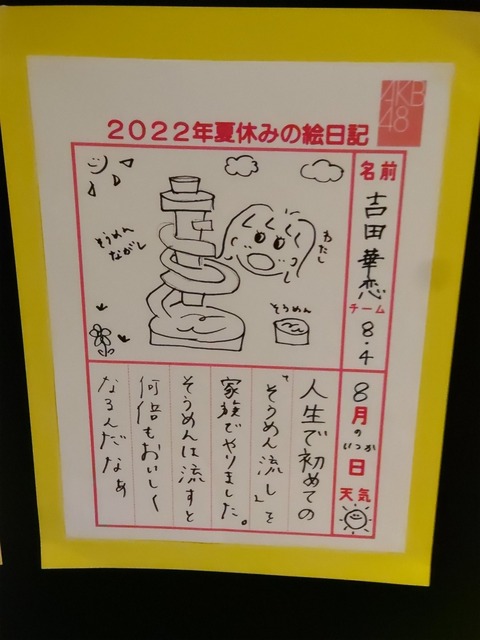 AKB
48
2022年夏休みの絵日記
名前
吉田華恋
チーム
8.4
8月のいつか日
天気
そうめん
ながし
わたし
そうめん
人生で初めての
「そうめん流し」を
家族でやりました。
そうめんは流すと
何倍もおいしく
なるんだなぁ